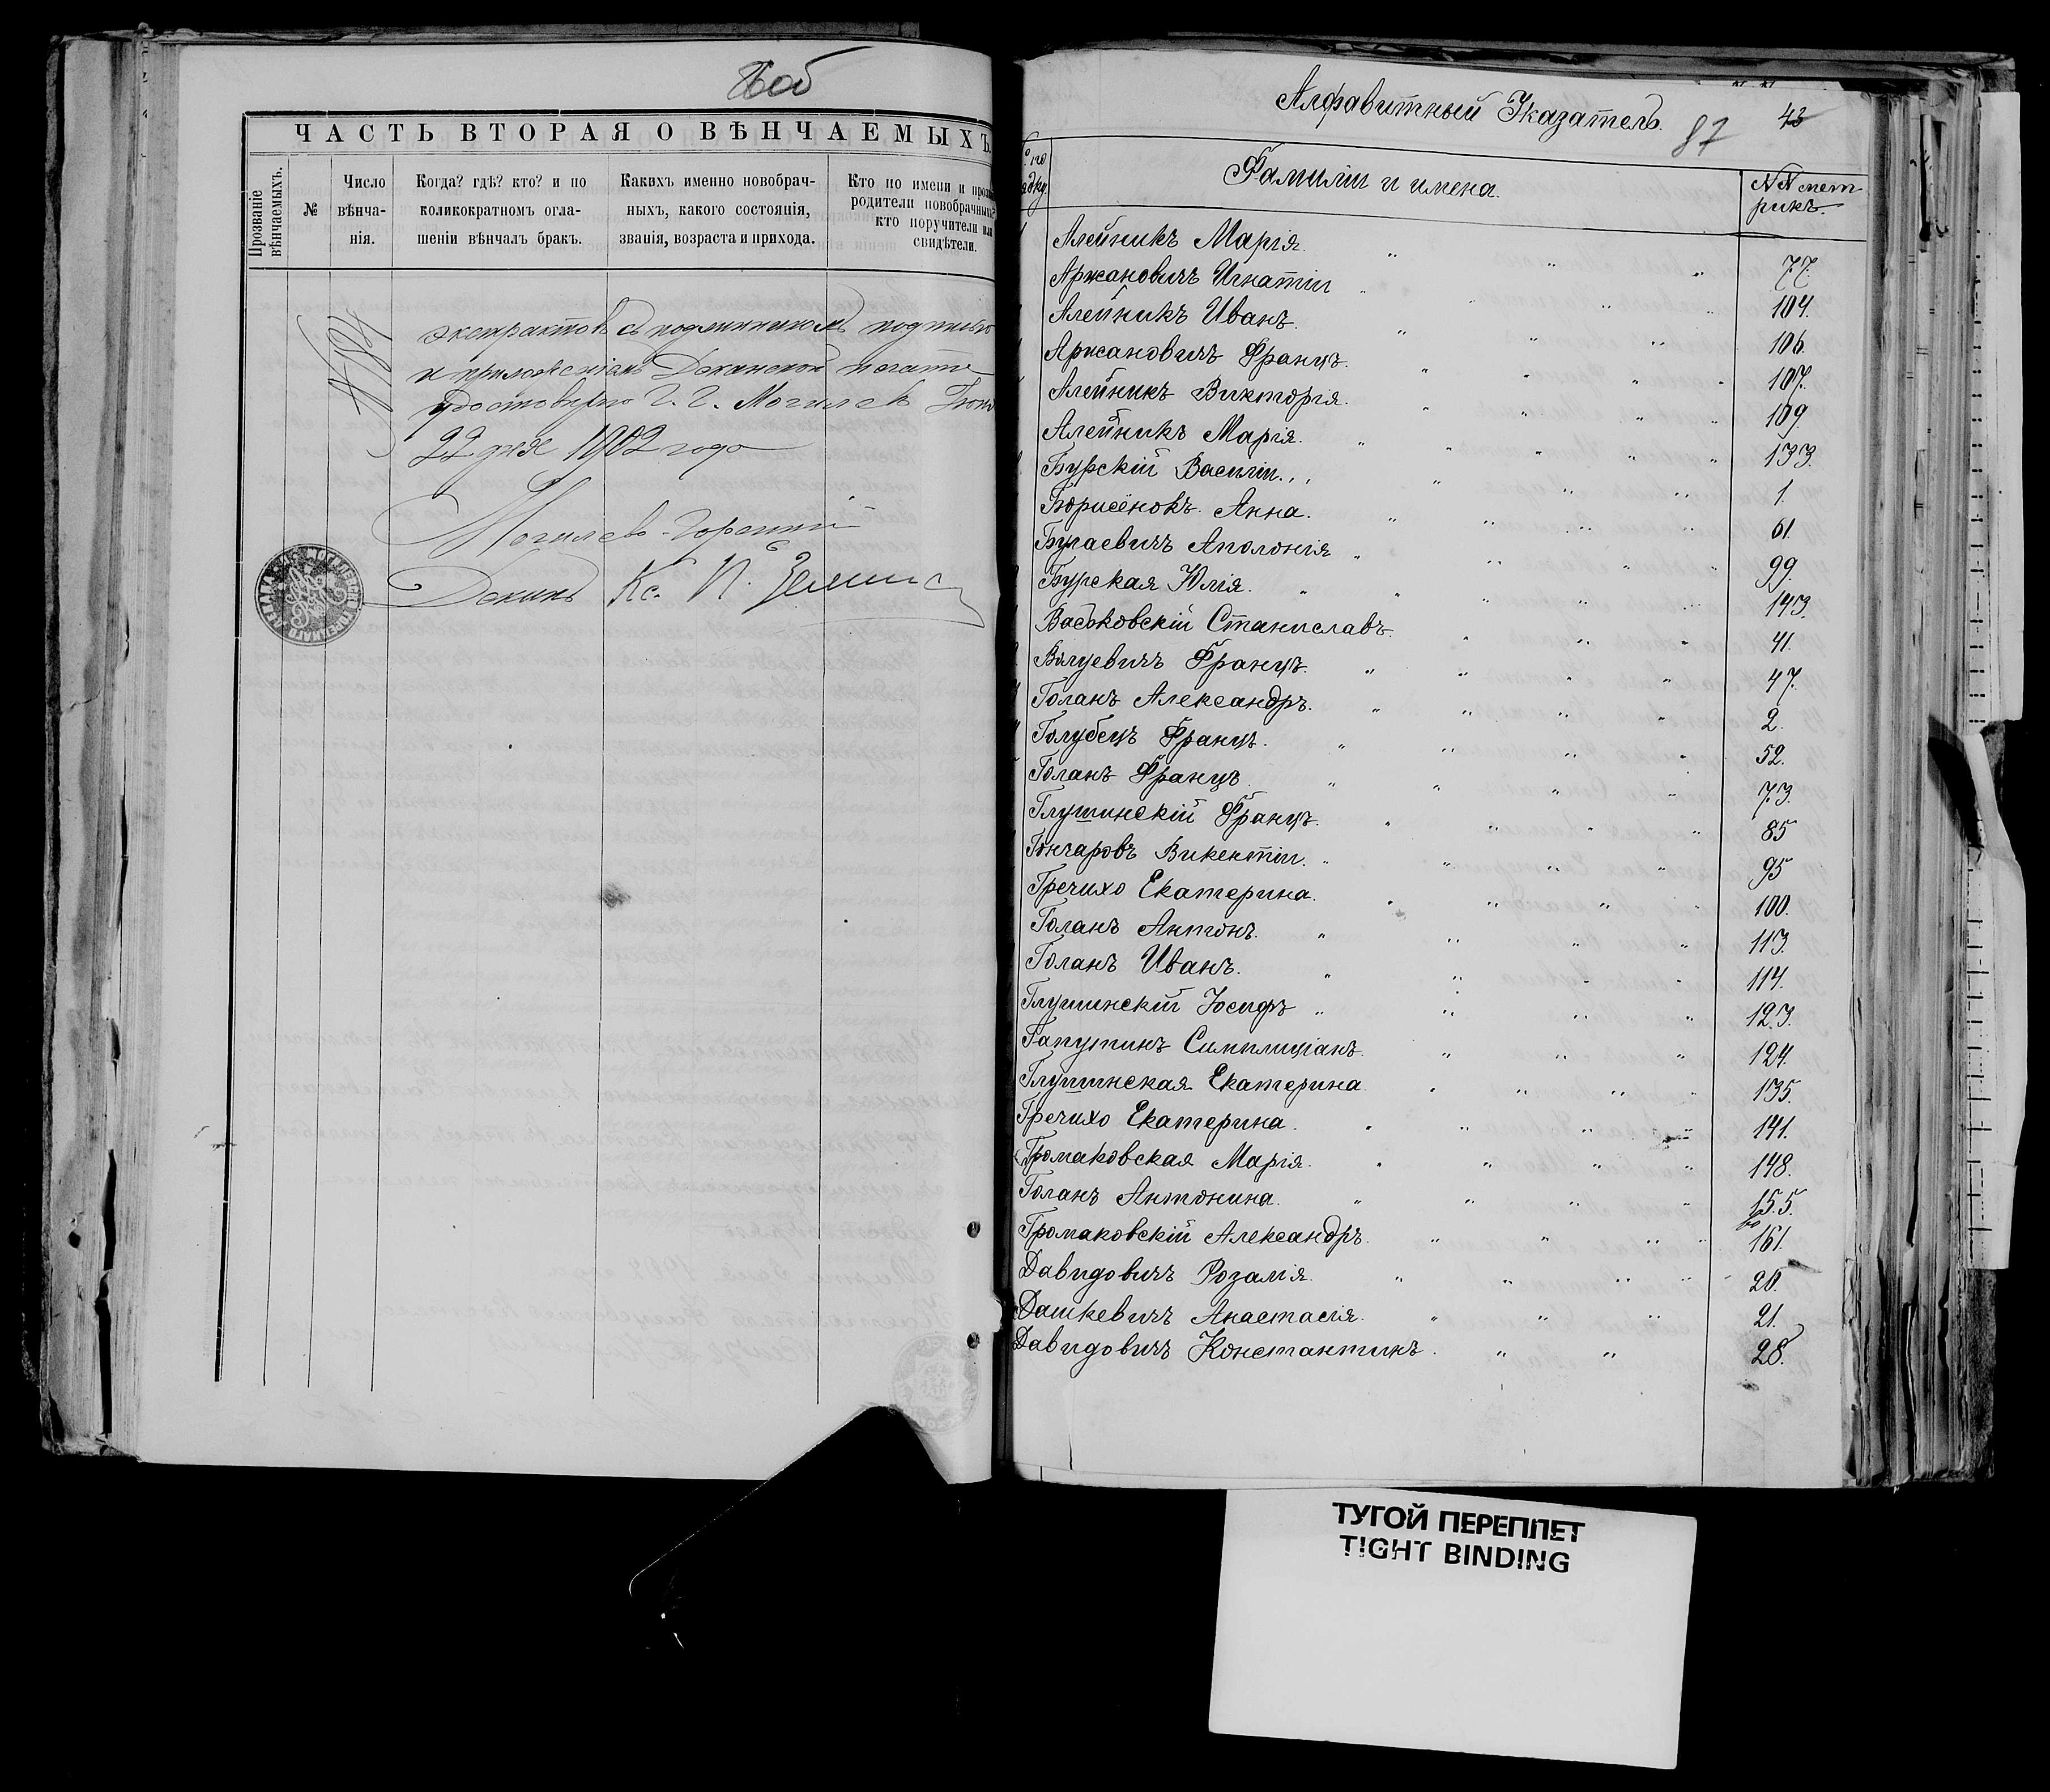 86 об
ЧАСТЬ ВТОРАЯ О ВѢНЧАЕМЫХЪ.
Прозваніе вѣнчаемыхъ.
№
Число вѣнча-
нія.
Когда? гдѣ? кто? и по
коликократномъ огла-
шеніи вѣнчалъ бракъ.
Какихъ именно новобрач-
ныхъ, какого состоянія,
званія, возраста и прихода.
Кто по имени и
родители новобрачныхъ
кто поручители или
свидѣтели.
экстрактовъ съ подлинникомъ подписью
и приложеніемъ Деканской печати
удостовѣряю Г. Г. Могилевъ
22 дня 1902 года
№ 124
Могилево-Горецкій
Деканъ Кс. П.
Алфавитный Указатель.
87
43
Фамиліи и имена.
NN мет-
рикъ.
Алейникъ Марія. 77.
Аржановичъ Игнатій 104.
Алейникъ Иванъ. 106.
Аржановичъ Францъ. 107.
Алейникъ Викторія. 109.
Алейникъ Марія. 133.
Бурскій Василій. 1.
Борисёнокъ Анна. 61.
Бугаевичъ Аполонія 99.
Бурская Юлія. 143.
Васьковскій Станиславъ. 41.
Валуевичъ Францъ. 47.
Голанъ Александръ. 2.
Голубецъ Францъ. 52.
Голанъ Францъ. 73.
Глушинскій Францъ. 85
Гончаровъ Викентій. 95
Гречихо Екатерина. 100.
Голанъ Антонъ. 113.
Голанъ Иванъ. 114.
Глушинскій Іосифъ 123.
Гапутинъ Симплиціанъ. 124.
Глушинская Екатерина 135.
Гречихо Екатерина. 141.
Громаковская Марія. 148.
Голанъ Антонина. 155.
Громаковскій Александръ. 161.
Давидовичъ Розалія. 20.
Дашкевичъ Анастасія. 21.
Давидовичъ Константинъ. 28.
ТУГОЙ ПЕРЕПЛЕТ
TIGHT BINDING